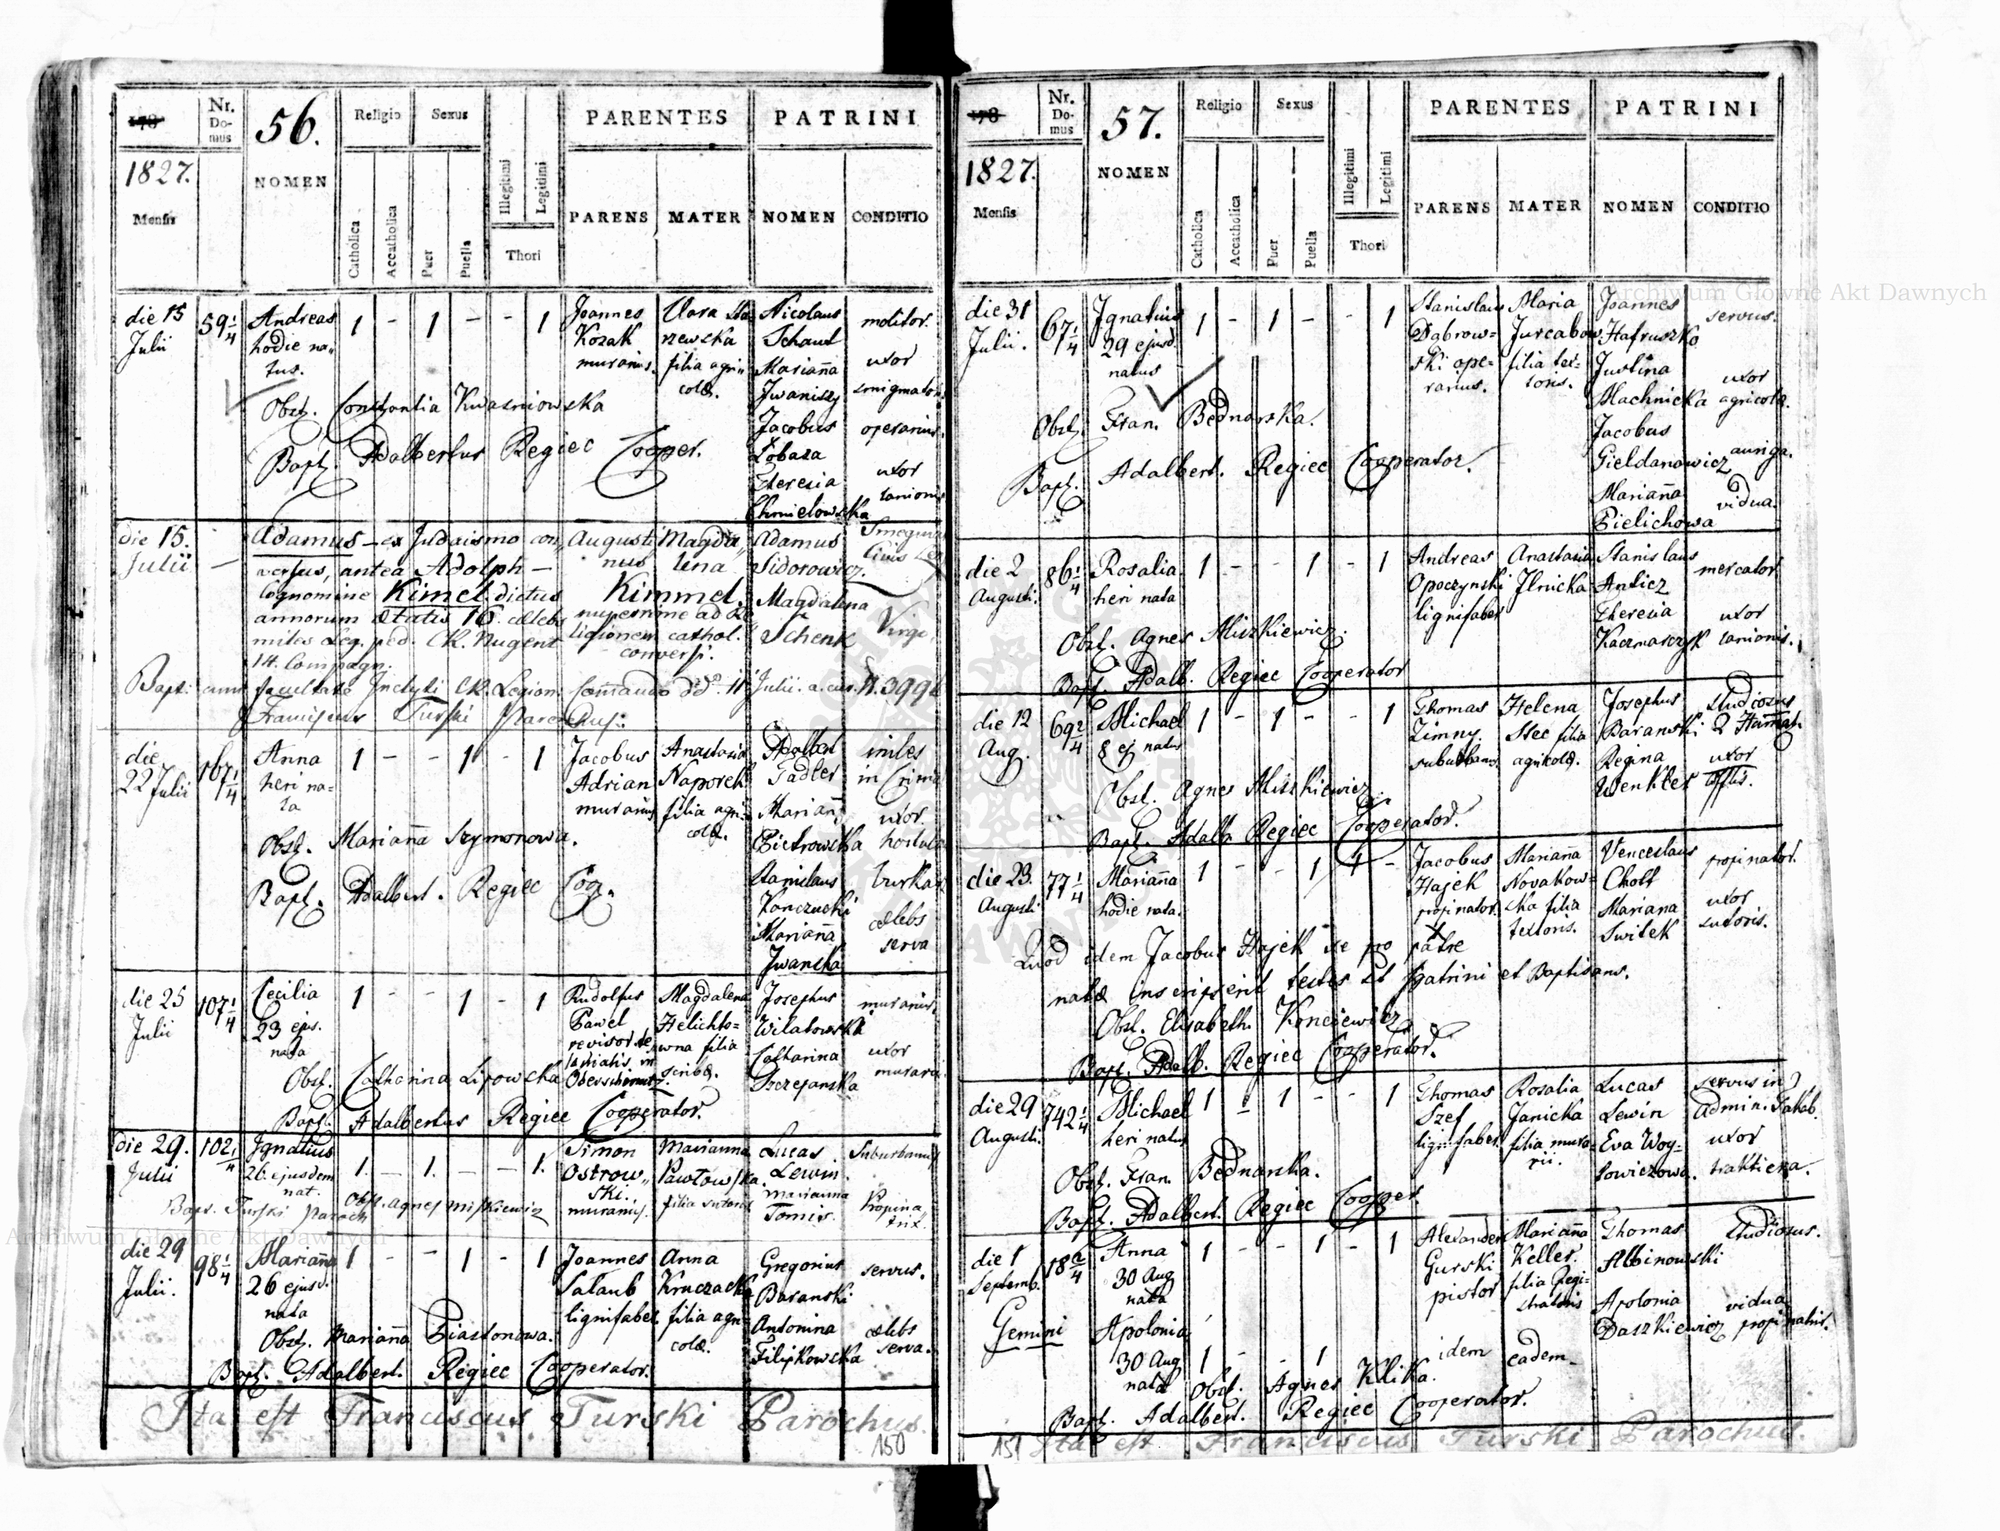 178
Nr. Domus
56.
Religio
Sexus
PARENTES
PATRINI
1827.
NOMEN
Mensis
Catholica
Accatholica
Puer
Puella
Illegitimi
Legitimi
Thori
PARENS
MATER
NOMEN
CONDITIO
die 15 Julii
59 1/4
Andreas
hodie na-
tus.
1 - 1 - - 1
Joannes
Kozak
murarius.
Clara
newska
filia agri-
colæ.
Nicolaus
Schaul
molitor.
Marianna
Jwanisz
uxor
Jacobus
Łobaza
operarius.
Theresia
Chmielowska
uxor
lanionis
Obst. Constantia Kwasniowska
Bapt. Adalbertus Regiec Cooper.
die 15.
Julii
-
Adamus - ex Judaismo con-
versus, antea Adolph -
Cognomine Kimel dictus
annorum ætatis 16. cælebs
miles Leg. ped. CR. Nugent
14. Compagn.
Augusti-
nus
Magda-
lena
Kimmel.
nuperrime ad Re-
ligionem cathol.
conversi.
Adamus
Sidorowicz.
Magdalena
Schenk
Virgo.
Bapt: cum facultate Inclyti CR. Legion: Commando dd° 11 Julii. a. cur. N. 399
Franciscus Turski Parochus.
die
22 Julii
167 1/4
Anna
heri na-
ta
1 - - 1 - 1
Jacobus
Adrian
murarius
Anastasia
Naporek
filia agri-
colæ.
Adalbert
Tadler
miles
Mariann
Pietrowska
uxor.
Stanislaus
Janczucki
Marianna
Jwanska
cælebs
serva
Obst. Marianna Szymonowa.
Bapt. Adalbert. Regiec Coop.
die 25
Julii
107 1/4
Cecilia
23 ejus.
nata
1 - - 1 - 1
Rudolfus
Pawel
revisor
Magdalena
Helichto-
wna filia
scribæ.
Josephus
Wilatowski
murarius.
Catharina
Szczepanska
uxor
murarii
Obst. Catharina Lipowska
Bapt. Adalbertus Regiec Cooperator.
die 29.
Julii
102 1/4
Ignatius
26. ejusdem
nat.
1. - 1. - - 1.
Simon
Ostrow-
ski.
murarius.
Marianna
Pawłowska.
filia sutoris
Lucas
Lewin.
Suburbanus
Marianna
Tomis.
Propina
trix.
Bapt. Turski Paroch Obst. Agnes Miszkiewicz
die 29
Julii.
98 1/4
Marianna
26 ejusd.
nata
1 - - 1 - 1
Joannes
Salaub
lignifaber
Anna
Kruczacka
filia agri-
colæ.
Gregorius
Baranski
servus.
Antonina
Filipkowska
cælebs
serva.
Obst. Marianna Piastonowa.
Bapt. Adalbert. Regiec Cooperator.
Ita est Franciscus Turski Parochus.
150
178
Nr. Domus
57.
Religio
Sexus
PARENTES
PATRINI
1827.
NOMEN
Mensis
Catholica
Accatholica
Puer
Puella
Illegitimi
Legitimi
Thori
PARENS
MATER
NOMEN
CONDITIO
die 31
Julii.
67 1/4
Ignatius
29 ejusd
natus
1 - 1 - - 1
Stanislaus
Dąbrow-
ski ope-
rarius.
Maria
Jurcabow.
filia tex-
toris.
Joannes
Hafruszko
servus.
Justina
Machnicka
uxor
agricolæ.
Jacobus
Gieldanowicz
auriga.
Marianna
Pielichowa
vidua.
Obst. Fran. Bednarska.
Bapt. Adalbert. Regiec Cooperator.
die 2
Augusti.
86 1/4
Rosalia
heri nata
1 - - 1 - 1
Andreas
Opoczynski
lignifaber
Anastasia
Ilnicka
Stanislaus
Anlicz
mercator
Theresia
Kaczmarczyk
uxor
lanionis.
Obst. Agnes Miszkiewicz.
Bapt. Adalb. Regiec Cooperator
die 12
Aug.
69 2/4
Michael
8 ej natus
1 - 1 - - 1
Thomas
Zimny
suburbanus
Helena
Stec filia
agricolæ.
Josephus
Baranski.
studiosus
Regina
Wenkler
uxor
Obst. Agnes Miszkiewicz.
Bapt. Adalb Regiec Cooperator.
die 23.
Augusti
77 1/4
Marianna
hodie nata.
1 - - 1 1 -
Jacobus
Hajek
propinator.
Marianna
Novakow-
ska filia
textoris.
Venceslaus
Cholt
propinator.
Mariana
Switek
uxor
sutoris.
Quod idem Jacobus Hajek se pro patre
natæ inscripserit testes st patrini et Baptisans.
Obst. Elisabeth. Konciewicz
Bapt. Adalb. Regiec Cooperator.
die 29
Augusti.
742 1/4
Michael
heri natus
1 - 1 - - 1
Thomas
Szef
lignifaber
Rosalia
Janicka
filia mura-
rii.
Lucas
Lewin
servus in
Admin. Tabab.
Eva Woy-
towiczowa.
uxor
traktiera.
Obst. Fran. Bednarska.
Bapt. Adalbert. Regiec Cooper.
die 1
Septemb.
18 2/4
Gemini
Anna
30 Aug
nata
1 - - 1 - 1
Alexander
Gurski
pistor
Marianna
Keller.
filia Regi-
stratoris
Thomas
Albinowski
studiosus.
Apolonia
Daszkiewicz
vidua
propinatris.
Apolonia
30 Aug
nata
1 - - 1
idem eadem.
Obst. Agnes Klika.
Bapt. Adalbert. Regiec Cooperator.
151
Ita est Franciscus Turski Parochus.
Archiwum Główne Akt Dawnych
Archiwum Główne Akt Dawnych